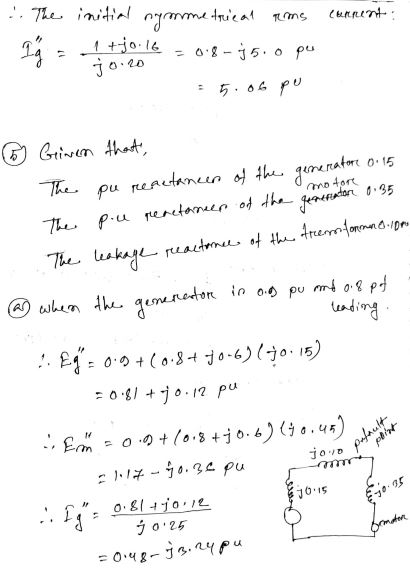 ∴ The initial symmetrical rms current:
Ig'' = 1 + j0.16 / j0.20 = 0.8 - j5.0 pu
= 5.06 pu
⑤ Given that,
The pu reactances of the generator 0.15
The p.u reactances of the generator motor 0.35
The leakage reactance of the transformer 0.10 pu
ⓐ when the generator is 0.9 pu and 0.8 pf leading.
∴ Eg'' = 0.9 + (0.8 + j0.6) (j0.15)
= 0.81 + j0.12 pu
∴ Em'' = 0.9 + (0.8 + j0.6) (j0.45)
= 1.17 - j0.36 pu
∴ Ig'' = 0.81 + j0.12 / j0.25
= 0.48 - j3.24 pu
j0.10
point
j0.15
j0.35
motor